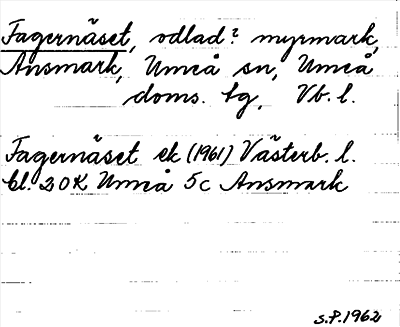 Fagernäset, odlad? myrmark,
Ansmark, Umeå sn, Umeå
doms. tg, Vb. l.
Fagernäset ek (1961) Västerb. l.
bl. 20K Umeå 5c Ansmark
S.P. 1962